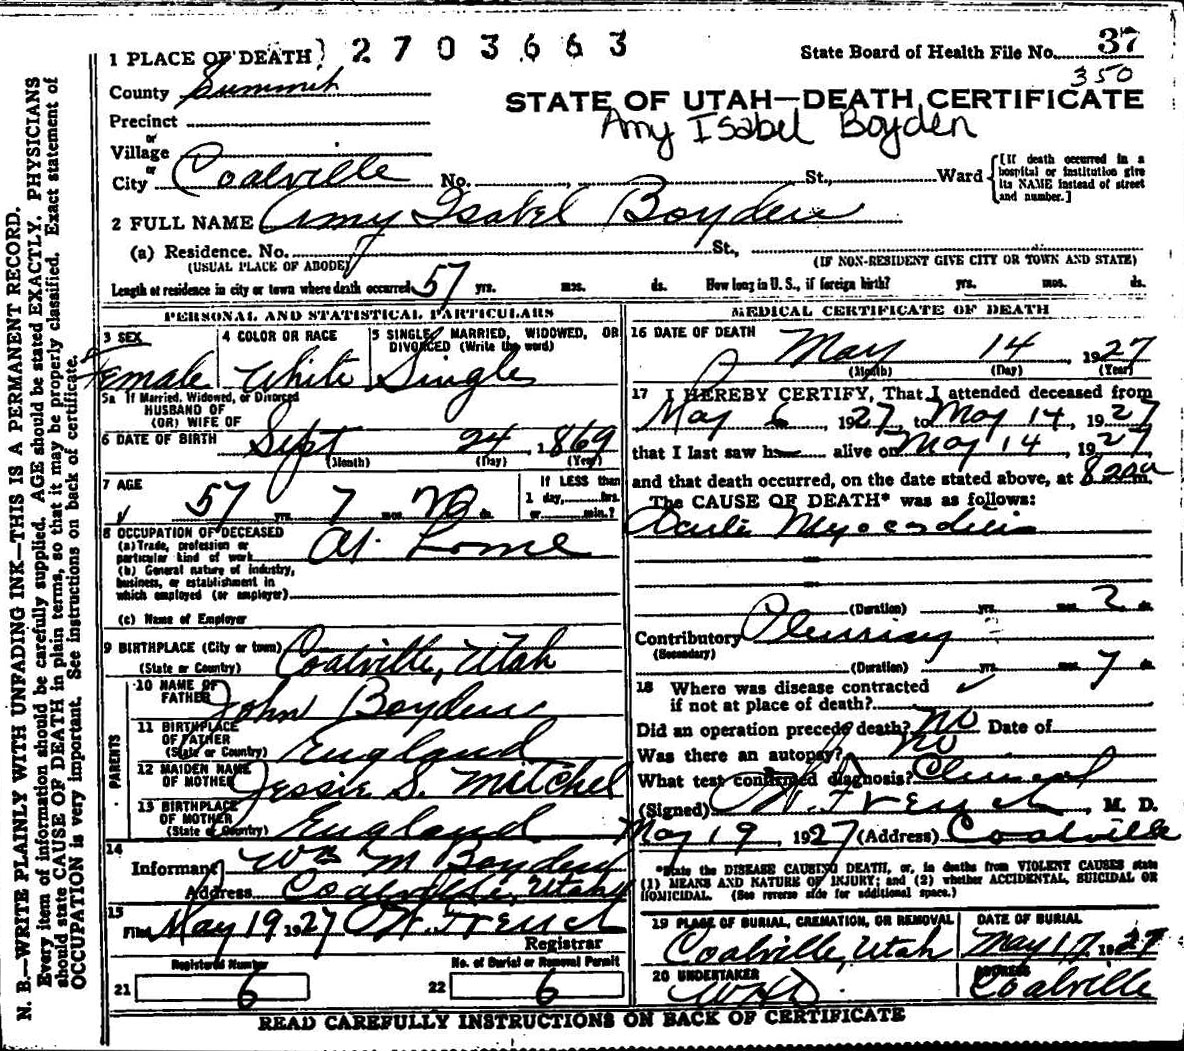 1 PLACE OF DEATH 2 7 0 3 6 6 3 State Board of Health File No. 37
County Summit 350
STATE OF UTAH—DEATH CERTIFICATE
Precinct Amy Isabel Boyden
or
Village
or
City Coalville No. St., Ward [If death occurred in a hospital or institution give its NAME instead of street and number.]
2 FULL NAME Amy Isabel Boyden
(a) Residence. No. St.,
(USUAL PLACE OF ABODE) (IF NON-RESIDENT GIVE CITY OR TOWN AND STATE)
Length of residence in city or town where death occurred 57 yrs. mos. ds. How long in U. S., if foreign birth? yrs. mos. ds.
PERSONAL AND STATISTICAL PARTICULARS
3 SEX 4 COLOR OR RACE 5 SINGLE, MARRIED, WIDOWED, OR DIVORCED (Write the word)
Female White Single
5a If Married, Widowed, or Divorced
HUSBAND OF
(OR) WIFE OF
6 DATE OF BIRTH Sept 24 1869
(Month) (Day) (Year)
7 AGE 57 yrs. 7 mos. 20 ds. If LESS than 1 day, hrs. or min.?
8 OCCUPATION OF DECEASED
(a) Trade, profession or particular kind of work At Home
(b) General nature of industry, business, or establishment in which employed (or employer)
(c) Name of Employer
9 BIRTHPLACE (City or town) Coalville, Utah
(State or Country)
PARENTS
10 NAME OF FATHER John Boyden
11 BIRTHPLACE OF FATHER England
(State or Country)
12 MAIDEN NAME OF MOTHER Jessie S. Mitchel
13 BIRTHPLACE OF MOTHER England
(State or Country)
14
Informant Wm M Boyden
Address Coalville, Utah
15
Filed May 19 1927 French
Registrar
Registered Number No. of Burial or Removal Permit
21 6 22 6
MEDICAL CERTIFICATE OF DEATH
16 DATE OF DEATH May 14, 1927
(Month) (Day) (Year)
17 I HEREBY CERTIFY, That I attended deceased from
May 6 1927, to May 14, 1927
that I last saw h alive on May 14 1927,
and that death occurred, on the date stated above, at 8 m.
The CAUSE OF DEATH* was as follows:
(Duration) yrs. mos. 2 ds.
Contributory Pleurisy
(Secondary)
(Duration) yrs. mos. 7 ds.
18 Where was disease contracted
if not at place of death?
Did an operation precede death? No Date of
Was there an autopsy? No
What test confirmed diagnosis? Clinical
(Signed) French, M. D.
May 19 1927 (Address) Coalville
*State the DISEASE CAUSING DEATH, or, in deaths from VIOLENT CAUSES state
(1) MEANS AND NATURE OF INJURY; and (2) whether ACCIDENTAL, SUICIDAL OR
HOMICIDAL. (See reverse side for additional space.)
19 PLACE OF BURIAL, CREMATION, OR REMOVAL DATE OF BURIAL
Coalville, Utah May 17 1927
20 UNDERTAKER ADDRESS
Coalville
READ CAREFULLY INSTRUCTIONS ON BACK OF CERTIFICATE
N. B.—WRITE PLAINLY WITH UNFADING INK—THIS IS A PERMANENT RECORD.
Every item of information should be carefully supplied. AGE should be stated EXACTLY, PHYSICIANS
should state CAUSE OF DEATH in plain terms, so that it may be properly classified. Exact statement of
OCCUPATION is very important. See instructions on back of certificate.